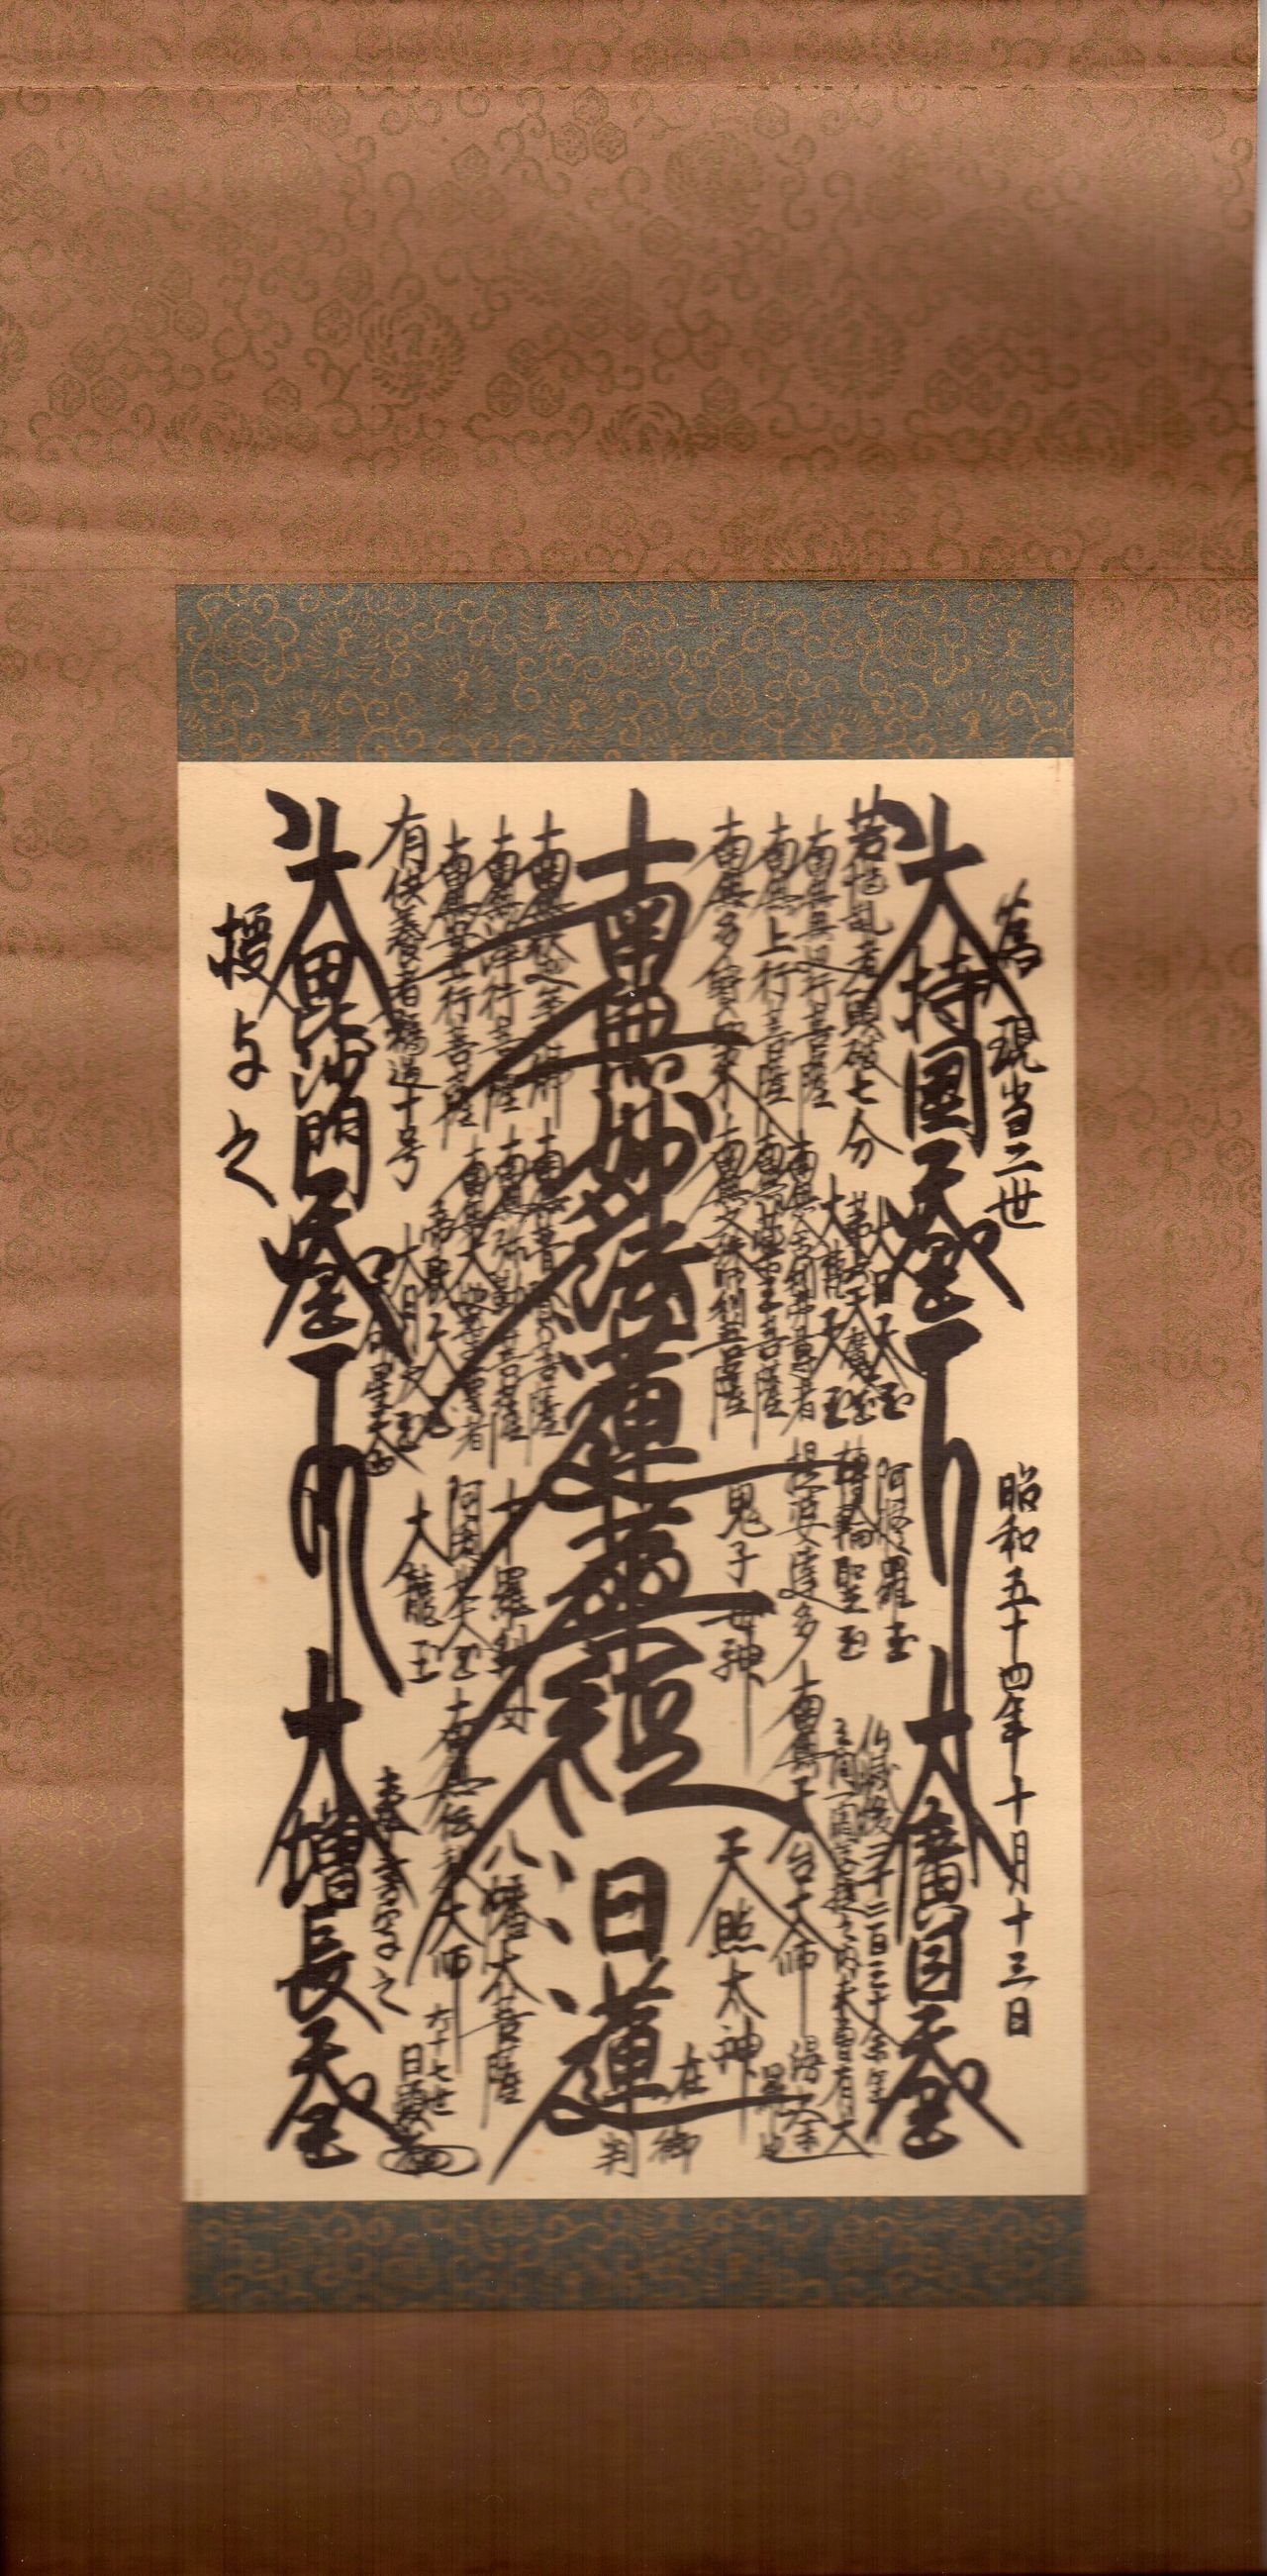 為現当二世
昭和五十四年十月十三日
大持國天王
大廣目天王
若悩乱者頭破七分
大日天王
第六天魔王
大梵天王
阿修羅王
転輪聖王
提婆達多
仏滅後二千二百三十余年之間一閻浮提之内未曾有大漫荼羅也
南無無辺行菩薩
南無上行菩薩
南無多宝如来
南無舎利弗尊者
南無薬王菩薩
南無文殊師利菩薩
鬼子母神
南無天台大師
天照太神
南無妙法蓮華経
日蓮
在御判
南無釈迦牟尼仏
南無浄行菩薩
南無安立行菩薩
南無普賢菩薩
南無弥勒菩薩
南無大迦葉尊者
帝釈天王
大月天王
大明星天王
十羅刹女
阿闍世大王
大龍王
八幡大菩薩
南無伝教大師
有供養者福過十号
奉書写之
六十七世
日顕
大毘沙門天王
大増長天王
授与之